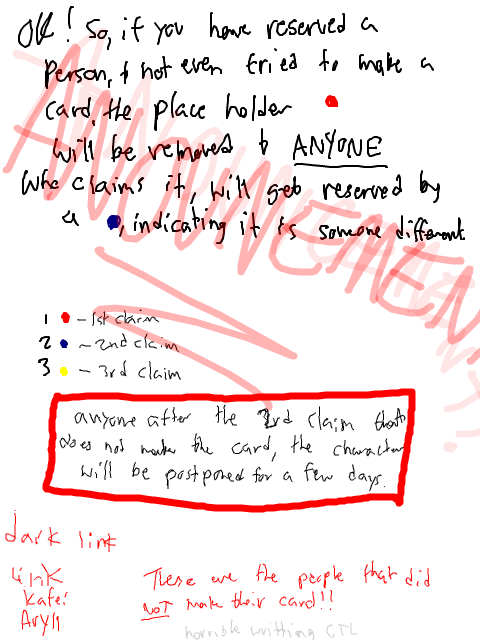 OK! So, if you have reserved a
person, & not even tried to make a
card, the place holder
will be removed & ANYONE
Who claims it, will get reserved by
a , indicating it is someone different
ANNOUNCEMENT!!
1 - 1st claim
2 - 2nd claim
3 - 3rd claim
anyone after the 3rd claim that
does not make the card, the character
will be postponed for a few days.
dark link
Link
Kafei
Aryll
These are the people that did
NOT make their card!!
horrible writting CTL